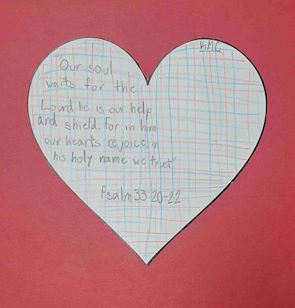 KMC
"Our soul
waits for the
Lourd he is our help
and shield. For in him
our hearts rejoice, in
his holy name we trust"
Psalm 33:20-22